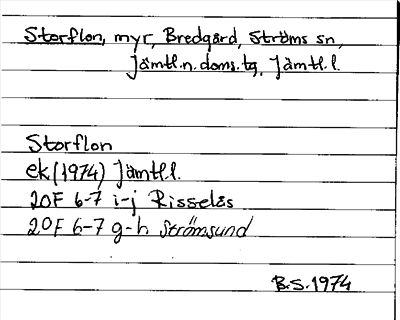 Storflon, myr, Bredgård, Ströms sn,
Jämtl.n.doms.tg, Jämtl.l.
Storflon
ek (1974) Jämtl.l.
20F 6-7 i-j Risselås
20F 6-7 g-h Strömsund
B.S. 1974